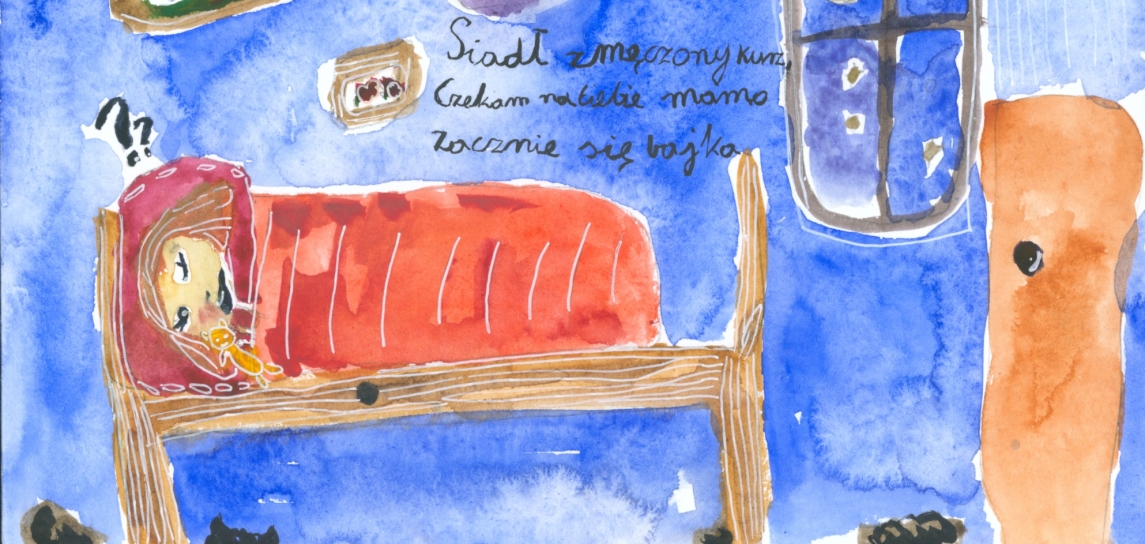 Siadł zmęczony kurz,
Czekam na Ciebie mamo
Zacznie się bajka
!?